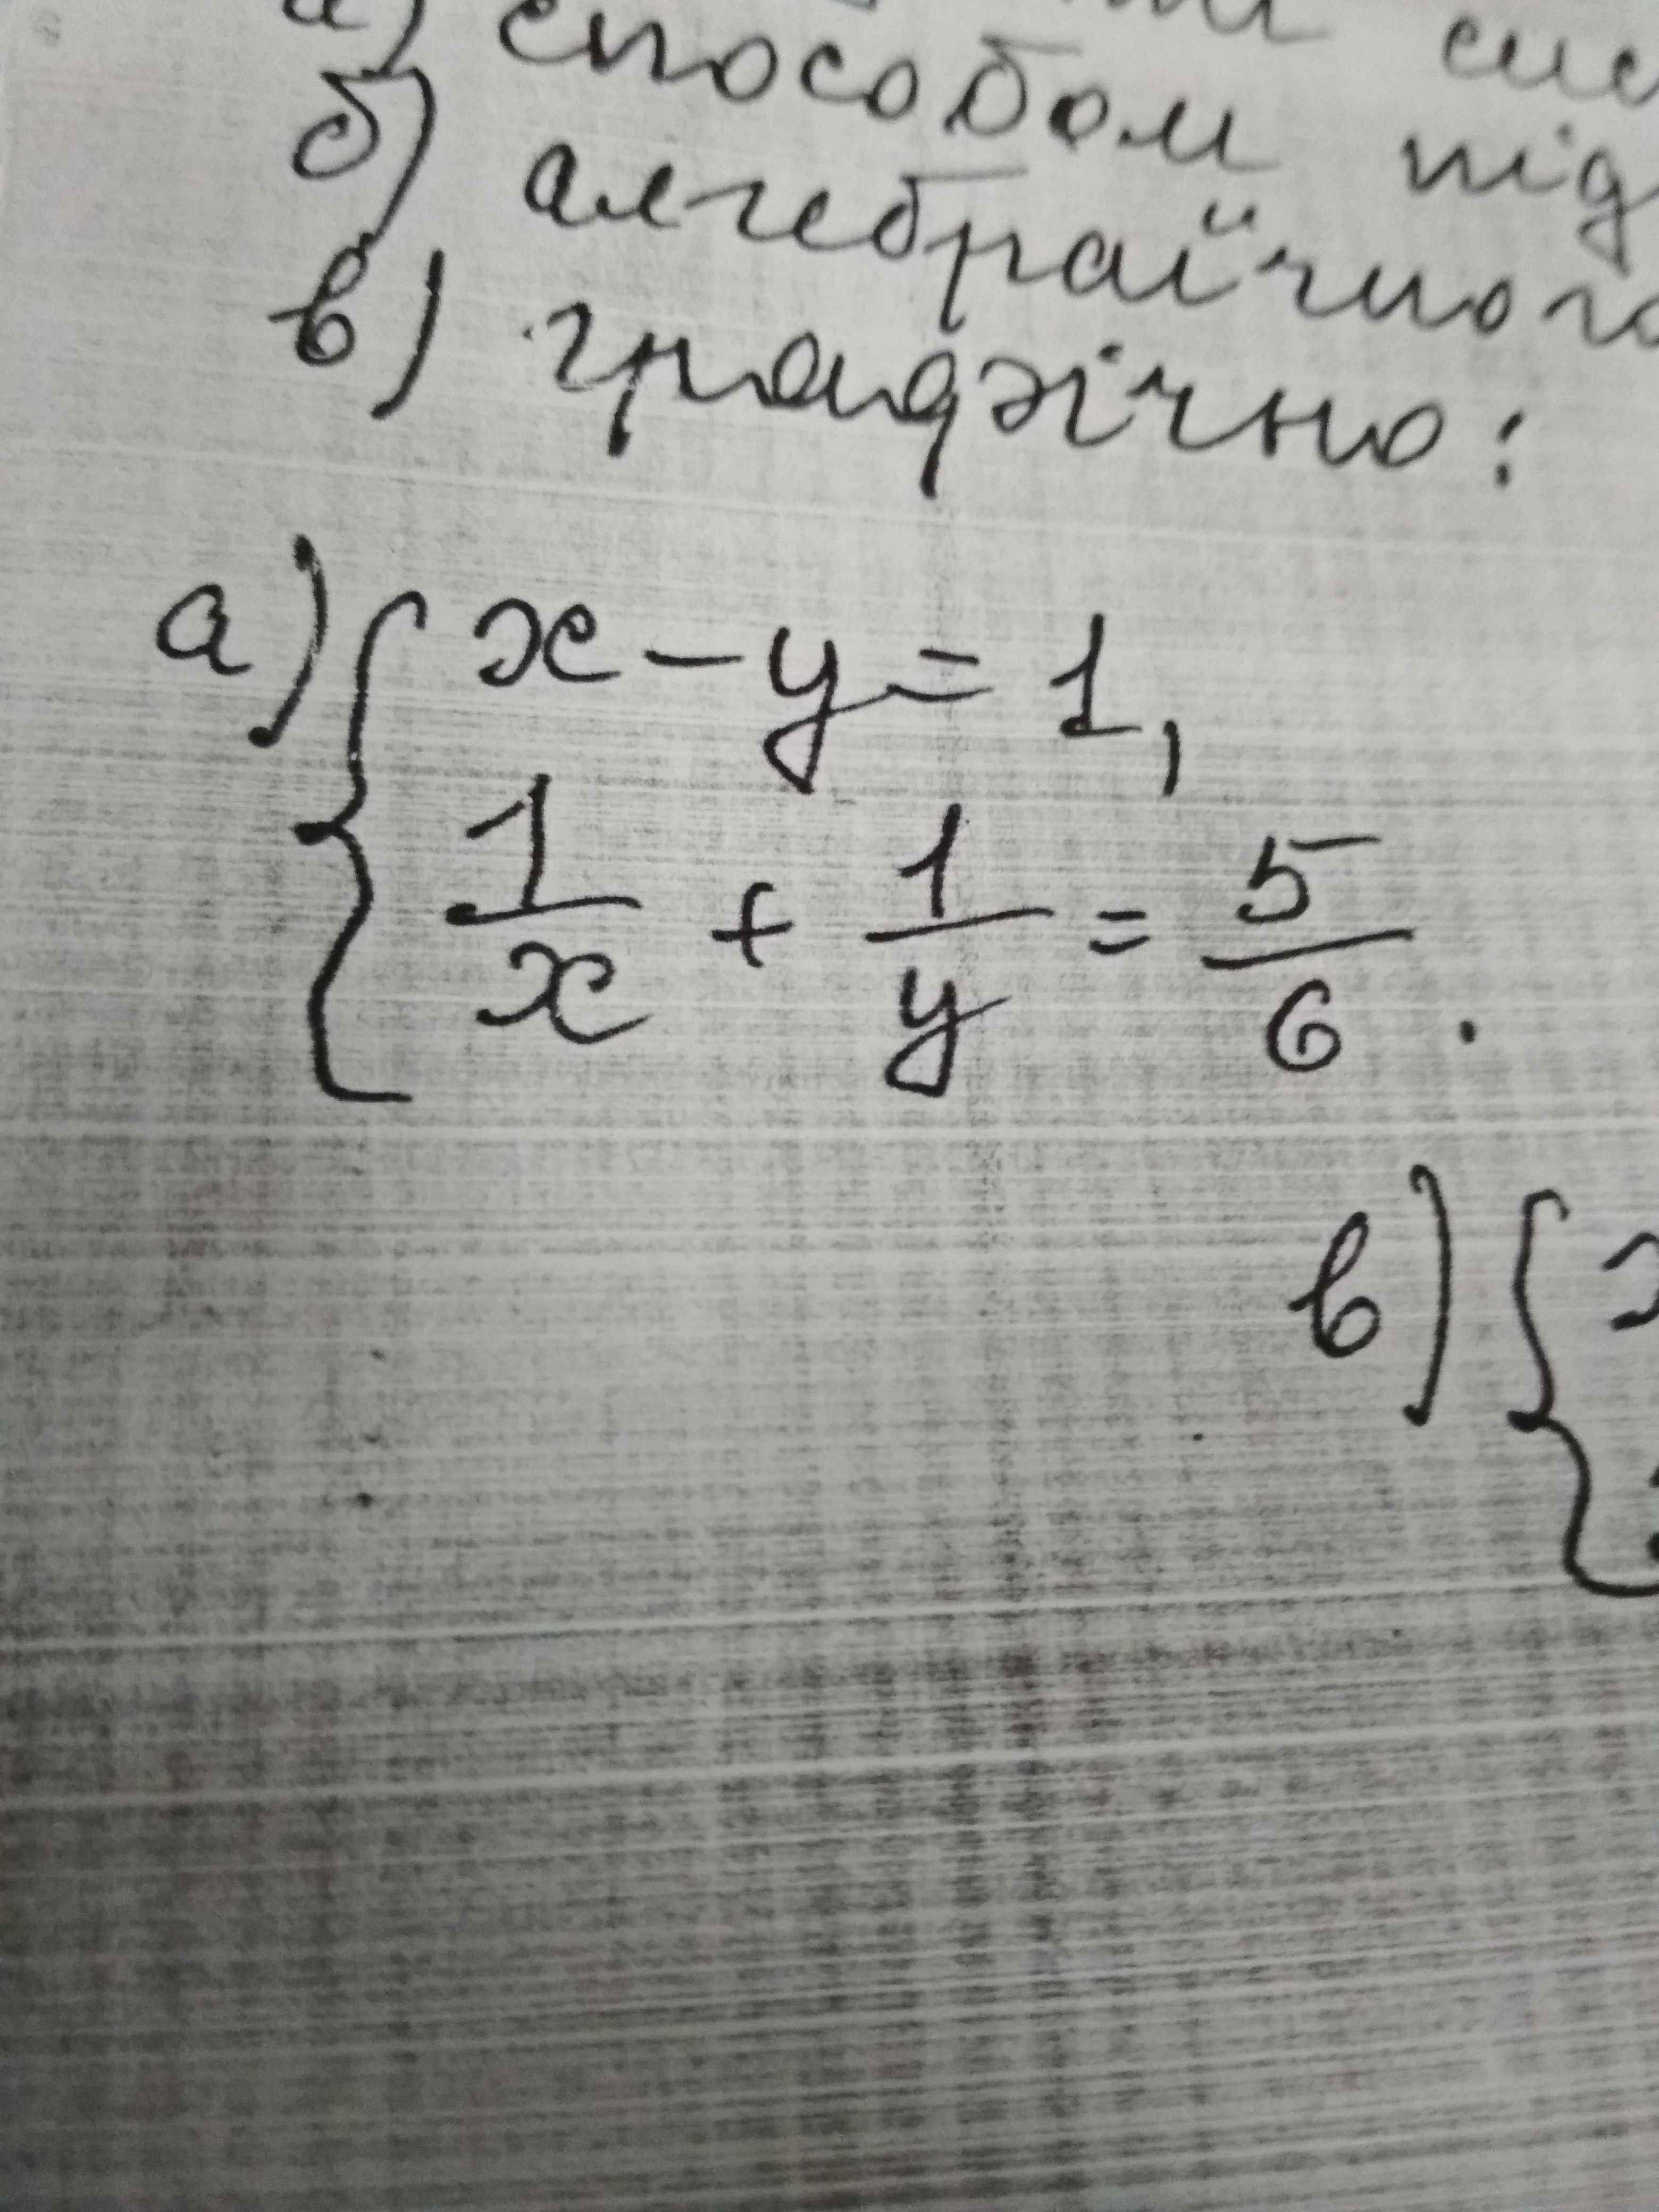 а) способом під
б) алгебраїчного
в) графічно:
а) { x - y = 1,
1/x + 1/y = 5/6.
в) {